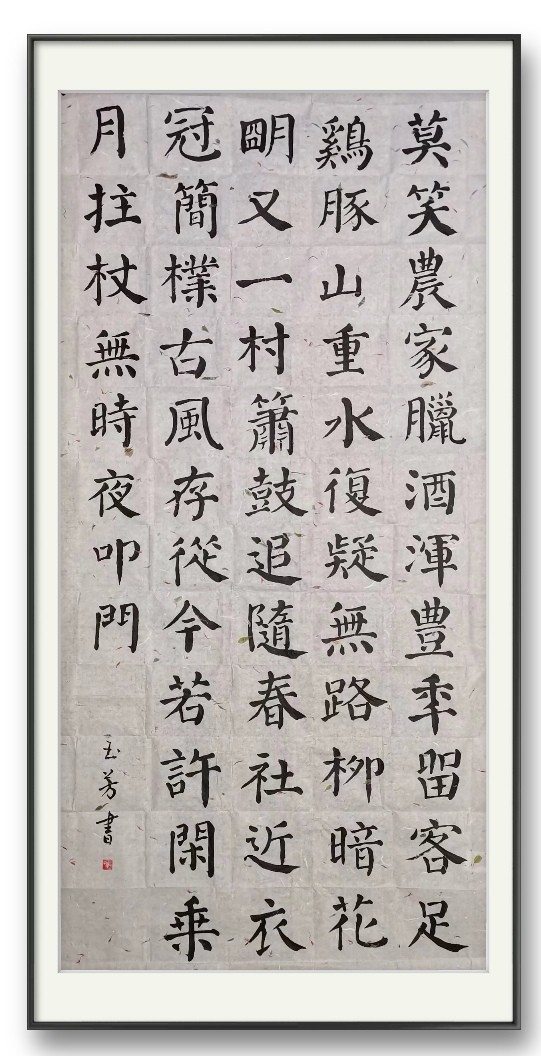 莫笑農家臘酒渾豊秊留客足
鷄豚山重水復疑無路柳暗花
朙又一村簫鼓追隨春社近衣
冠簡樸古風存從今若許閑乗
月拄杖無時夜叩門
玉芳書